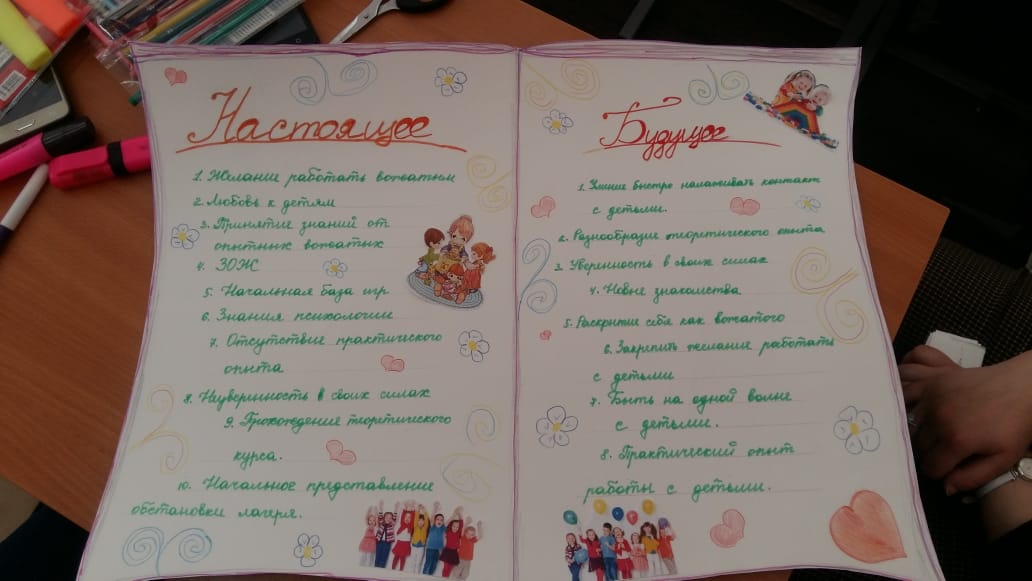 Настоящее
1. Желание работать вожатым
2. Любовь к детям
3. Принятие знаний от
опытных вожатых
4. ЗОЖ
5. Начальная база игр
6. Знания психологии
7. Отсутствие практического
опыта
8. Неуверенность в своих силах
9. Прохождение теоретического
курса.
10. Начальное представление
обстановки лагеря.
Будущее
1. Умение быстро налаживать контакт
с детьми.
2. Разнообразие теоретического опыта
3. Уверенность в своих силах
4. Новые знакомства
5. Раскрытие себя как вожатого
6. Закрепить желание работать
с детьми
7. Быть на одной волне
с детьми.
8. Практический опыт
работы с детьми.